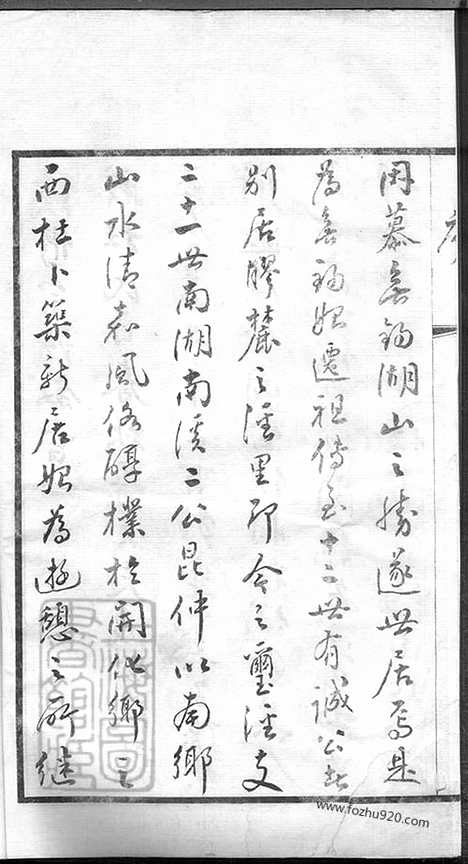 因慕無錫湖山之勝遂世居焉是
為無錫始遷祖傳至十二世有誠公者
別居膠麓之涇里即今之璽涇支
二十一世南湖南溪二公昆仲以南鄉
山水清嘉風俗醇樸於開化鄉之
西柱卜築新居始為遊憩之所繼
www.fozhu920.com